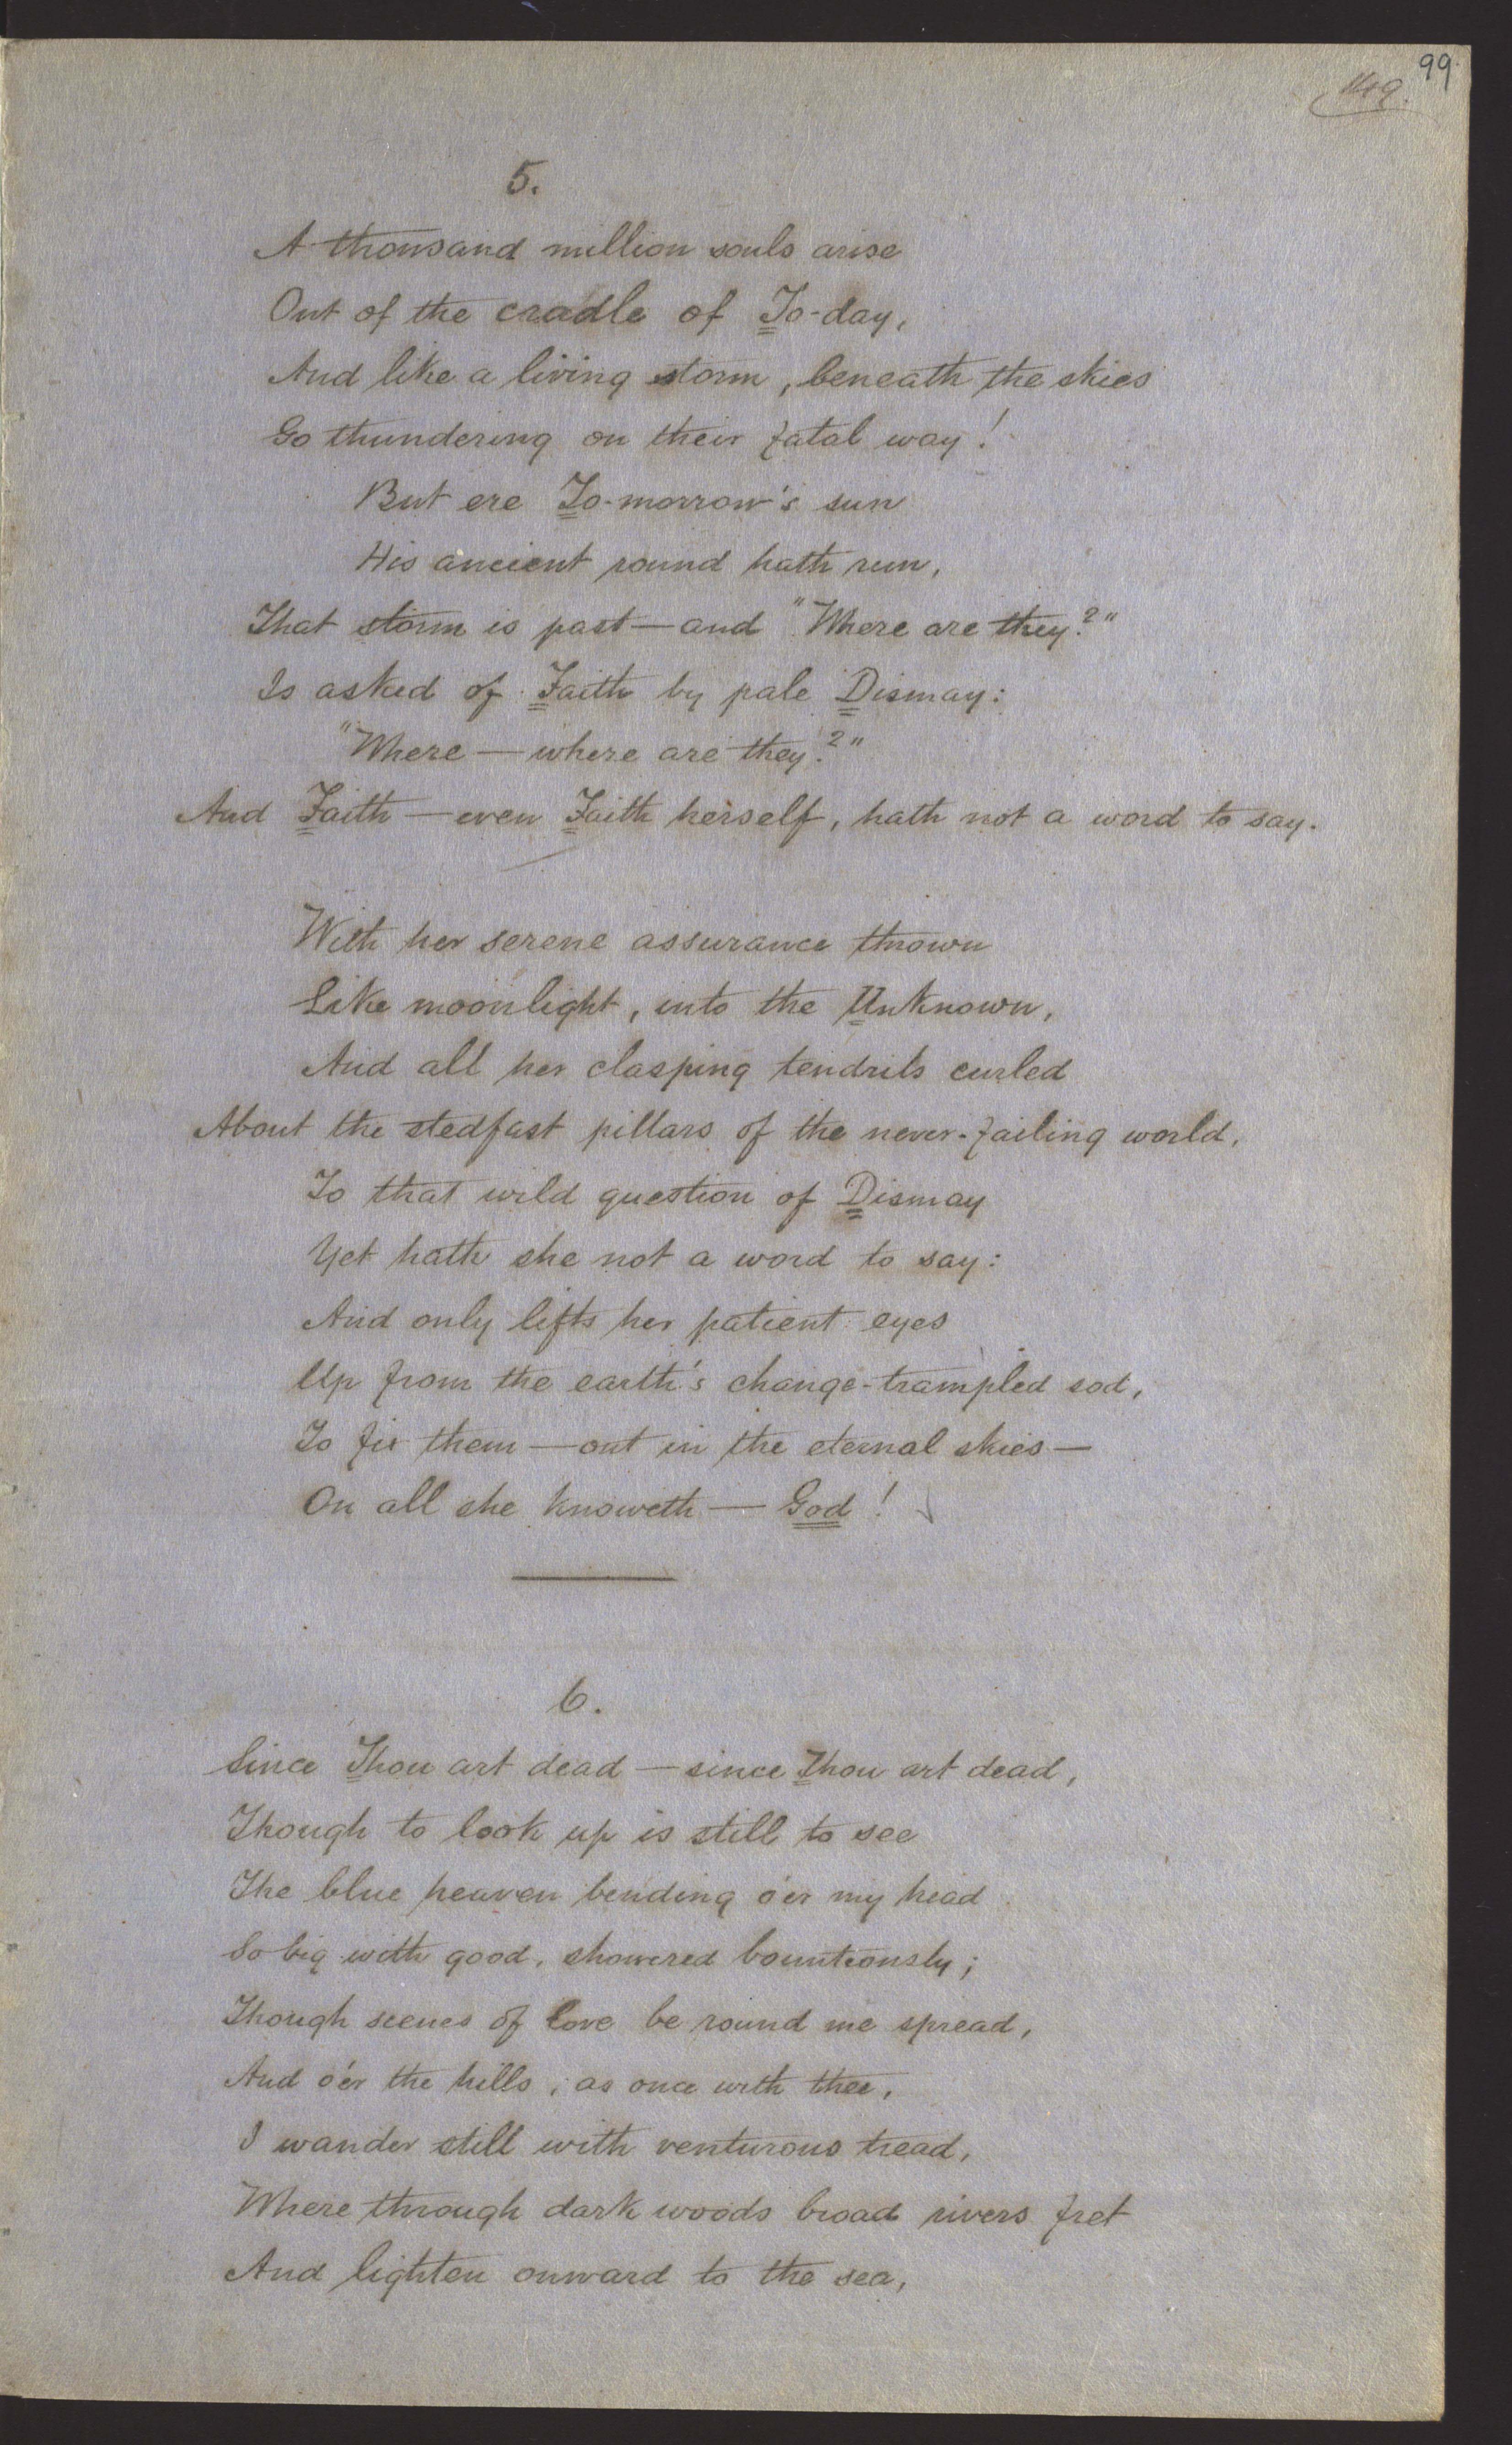 99.
149.
5.
A thousand million souls arise
Out of the cradle of To-day,
And like a living storm, beneath the skies
Go thundering on their fatal way!
But ere To-morrow's sun
His ancient round hath run,
That storm is past—and "Where are they?"
Is asked of Faith by pale Dismay:
"Where—where are they?"
And Faith—even Faith herself, hath not a word to say.
With her serene assurance thrown
Like moonlight, into the Unknown,
And all her clasping tendrils curled
About the stedfast pillars of the never-failing world,
To that wild question of Dismay
Yet hath she not a word to say:
And only lifts her patient eyes
Up from the earth's change-trampled sod,
To fix them—out in the eternal skies—
On all she knoweth—God!
6.
Since Thou art dead—since Thou art dead,
Though to look up is still to see
The blue heaven bending o'er my head
So big with good, showered bounteously;
Though scenes of love be round me spread,
And o'er the hills, as once with thee,
I wander still with venturous tread,
Where through dark woods broad rivers fret
And lighten onward to the sea,